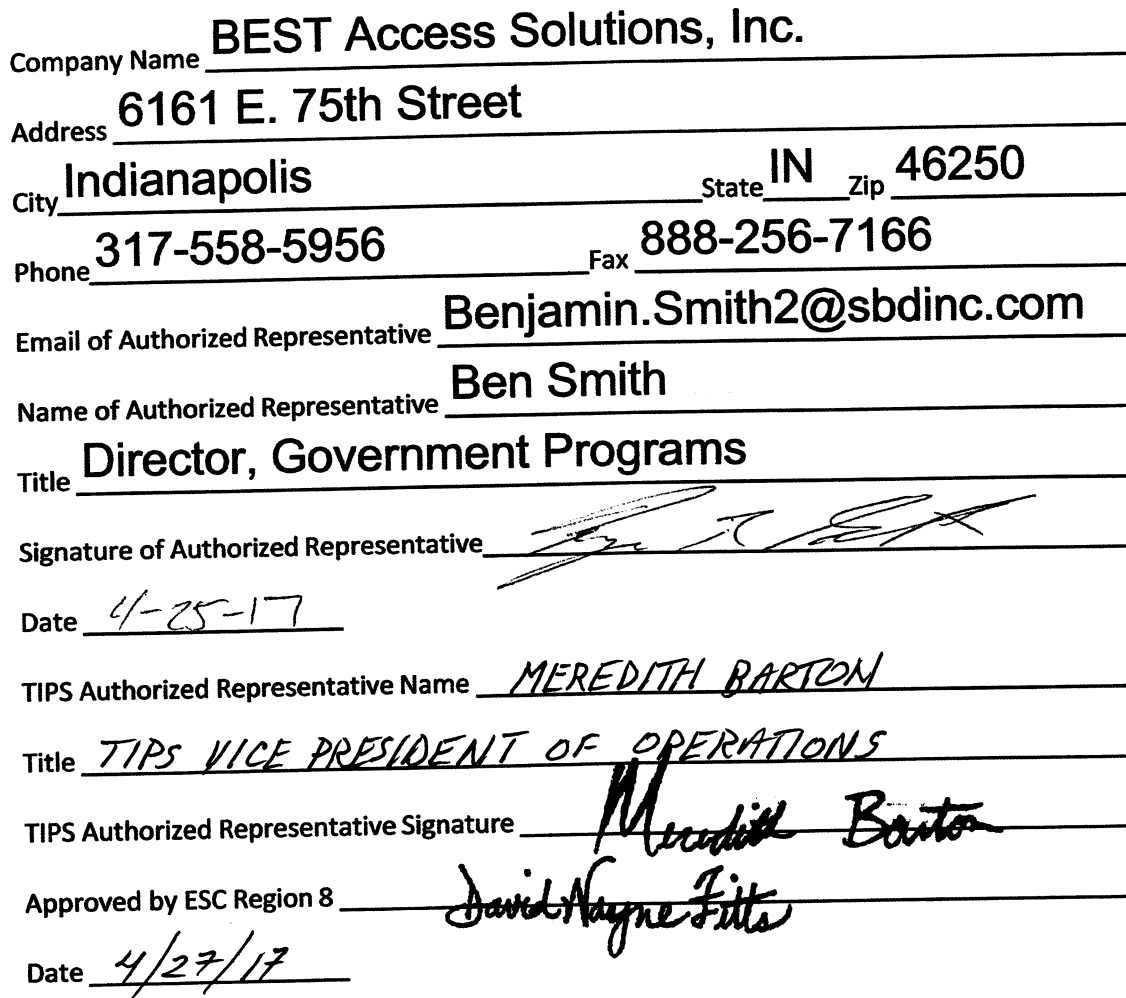 Company Name BEST Access Solutions, Inc.
Address 6161 E. 75th Street
City Indianapolis State IN Zip 46250
Phone 317-558-5956 Fax 888-256-7166
Email of Authorized Representative Benjamin.Smith2@sbdinc.com
Name of Authorized Representative Ben Smith
Title Director, Government Programs
Signature of Authorized Representative
Date 4-25-17
TIPS Authorized Representative Name MEREDITH BARTON
Title TIPS VICE PRESIDENT OF OPERATIONS
TIPS Authorized Representative Signature Meredith Barton
Approved by ESC Region 8 David Wayne Fitts
Date 4/27/17